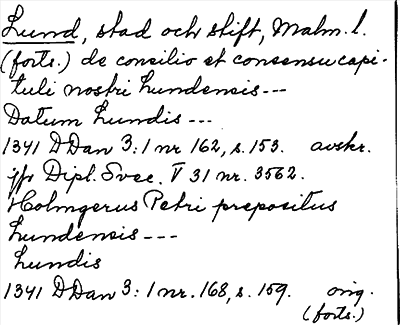 Lund, stad och stift, Malm. l.
(forts.) de consilio et consensu capi-
tuli nostri Lundensis ---
Datum Lundis ---
1341 DDan 3:1 nr 162, s. 153. avskr.
jfr Dipl. Svec. V 31 nr. 3562.
Holmgerus Petri prepositus
Lundensis ---
Lundis
1341 DDan 3:1 nr. 168, s. 159. orig.
(forts.)